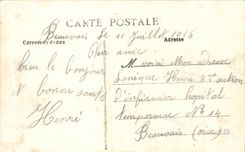 CARTE POSTALE
Correspondance
Adresse
Beauvais le 11 Juillet 1916
Cher amie
bien le bonjour
et bonne santé
Henri
voici mon adresse
Henri 2e section
d'infirmier hopital
temporaire No 14
Beauvais (oise)